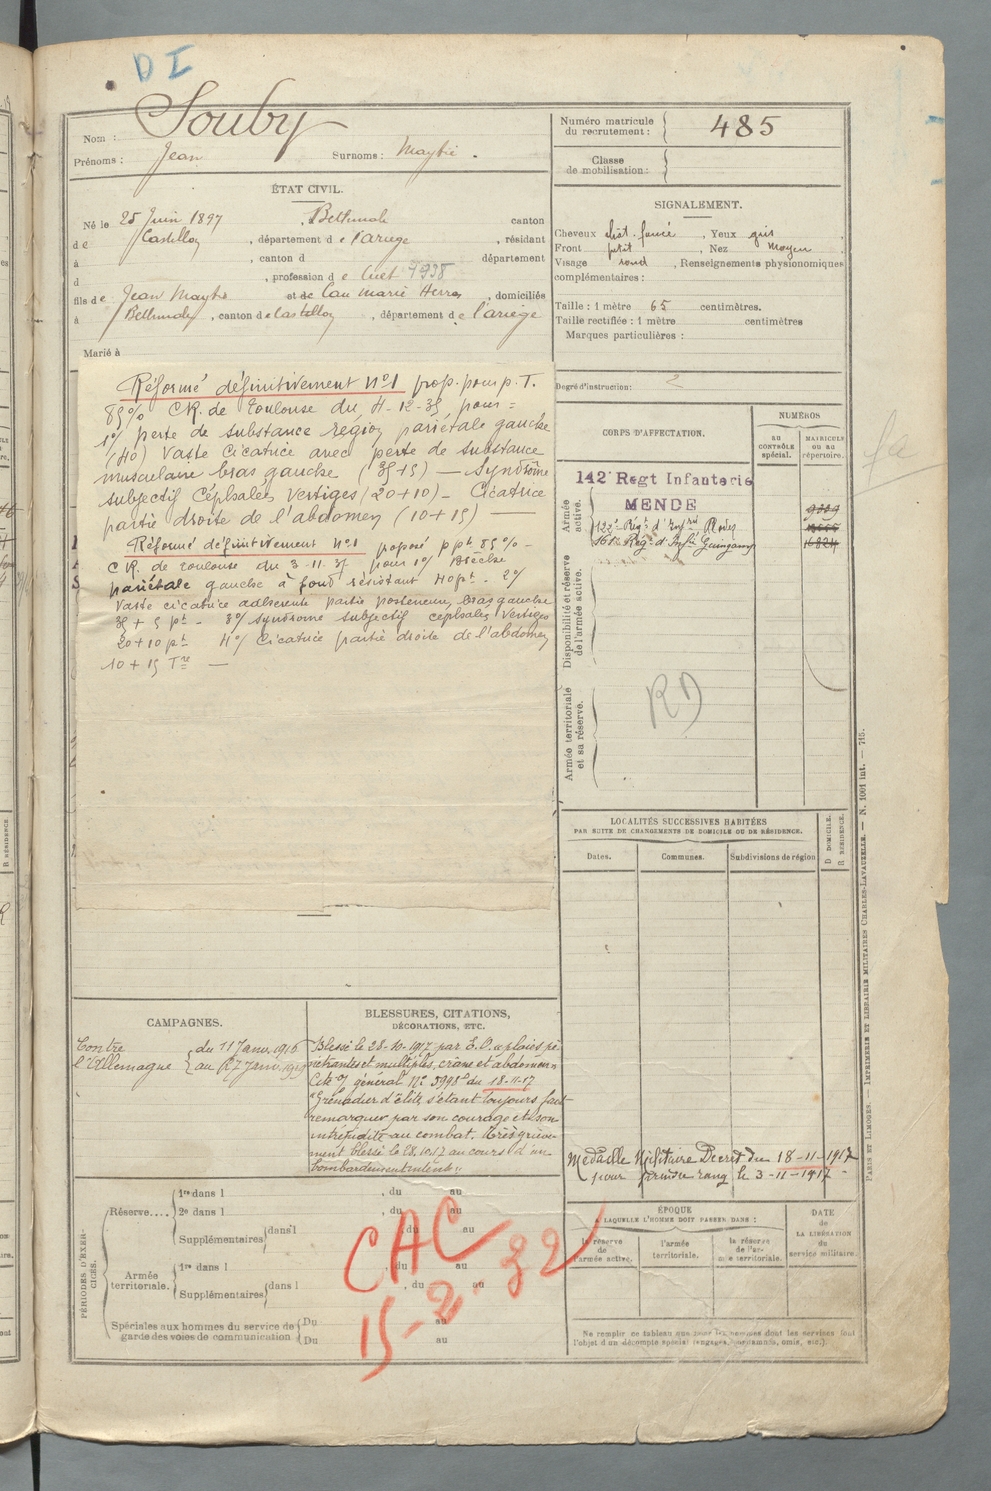 D I
Nom : Souby
Prénoms : Jean Surnoms : Maytié .
Numéro matricule
du recrutement : 485
Classe
de mobilisation :
ÉTAT CIVIL.
Né le 25 Juin 1897 , canton
de Castillon , département d e l'ariège , résidant
à , canton d département
d , profession d e
fils de Jean Maytié et de marie , domiciliés
à , canton de Castillon , département d e l'ariège
Marié à
SIGNALEMENT.
Cheveux chât. foncé , Yeux gris ,
Front petit , Nez moyen ,
Visage rond , Renseignements physionomiques
complémentaires :
Taille : 1 mètre 65 centimètres.
Taille rectifiée : 1 mètre centimètres
Marques particulières :
Degré d'instruction : 2
Réformé définitivement N°1 prop. pour p. T.
85% CR. de Toulouse du 4-12-35 pour =
1°/ perte de substance région pariétale gauche
(40) Vaste Cicatrice avec perte de substance
musculaire bras gauche (35+5) — Syndrôme
subjectif Céphalées Vertiges (20+10) — Cicatrice
partie droite de l'abdomen (10+15) —
Réformé définitivement N°1 proposé p pt 85% -
CR. de Toulouse du 3-11-37 pour 1°/ Brèche
pariétale gauche à fond résistant 40 pt. - 2°/
Vaste cicatrice adhérente partie postérieure bras gauche
35 + 5 pt - 3°/ Syndrome subjectif céphalées Vertiges
20+10 pt 4°/ Cicatrice partie droite de l'abdomen
10 + 15 —
CORPS D'AFFECTATION.
NUMÉROS
AU CONTRÔLE spécial.
MATRICULE ou au répertoire.
Armée active.
142e Regt Infanterie
MENDE
122e Régt d'Infrie Rodez
161e Régt d'Infie Guingamp
Disponibilité et réserve de l'armée active.
Armée territoriale et sa réserve.
RD
LOCALITÉS SUCCESSIVES HABITÉES
PAR SUITE DE CHANGEMENTS DE DOMICILE OU DE RÉSIDENCE.
Dates. Communes. Subdivisions de région
D DOMICILE.
R RÉSIDENCE.
CAMPAGNES.
Contre
l'Allemagne
du 11 Janv. 1916
BLESSURES, CITATIONS,
DÉCORATIONS, ETC.
Blessé le 28-10-1917 par E.O. plaies pé-
nétrantes et multiples, crâne et abdomen
général N° 5998 D du 18-11-17
"Grenadier d'élite s'étant toujours fait
remarquer par son courage et son
intrépidité au combat. Très griève-
ment blessé le 28.10.17 au cours d'un
bombardement intense"
Médaille Militaire Decret du 18-11-1917
pour prendre rang le 3-11-1917 -
PÉRIODES D'EXERCICES.
Réserve....
1re dans l , du au
2e dans l , du au
Supplémentaires dans l , du au
Armée territoriale.
1re dans l , du au
Supplémentaires dans l , du au
Spéciales aux hommes du service de
garde des voies de communication
Du au
Du au
CAC
15-2-32
ÉPOQUE
A LAQUELLE L'HOMME DOIT PASSER DANS :
la réserve de l'armée active.
l'armée territoriale.
la réserve de l'armée territoriale.
DATE
de
LA LIBÉRATION
du
service militaire.
Ne remplir ce tableau que pour les hommes dont les services font
l'objet d'un décompte spécial (engagés, omis, etc.).
PARIS ET LIMOGES. — IMPRIMERIE ET LIBRAIRIE MILITAIRES CHARLES-LAVAUZELLE. — N. 1001 int. — 715.